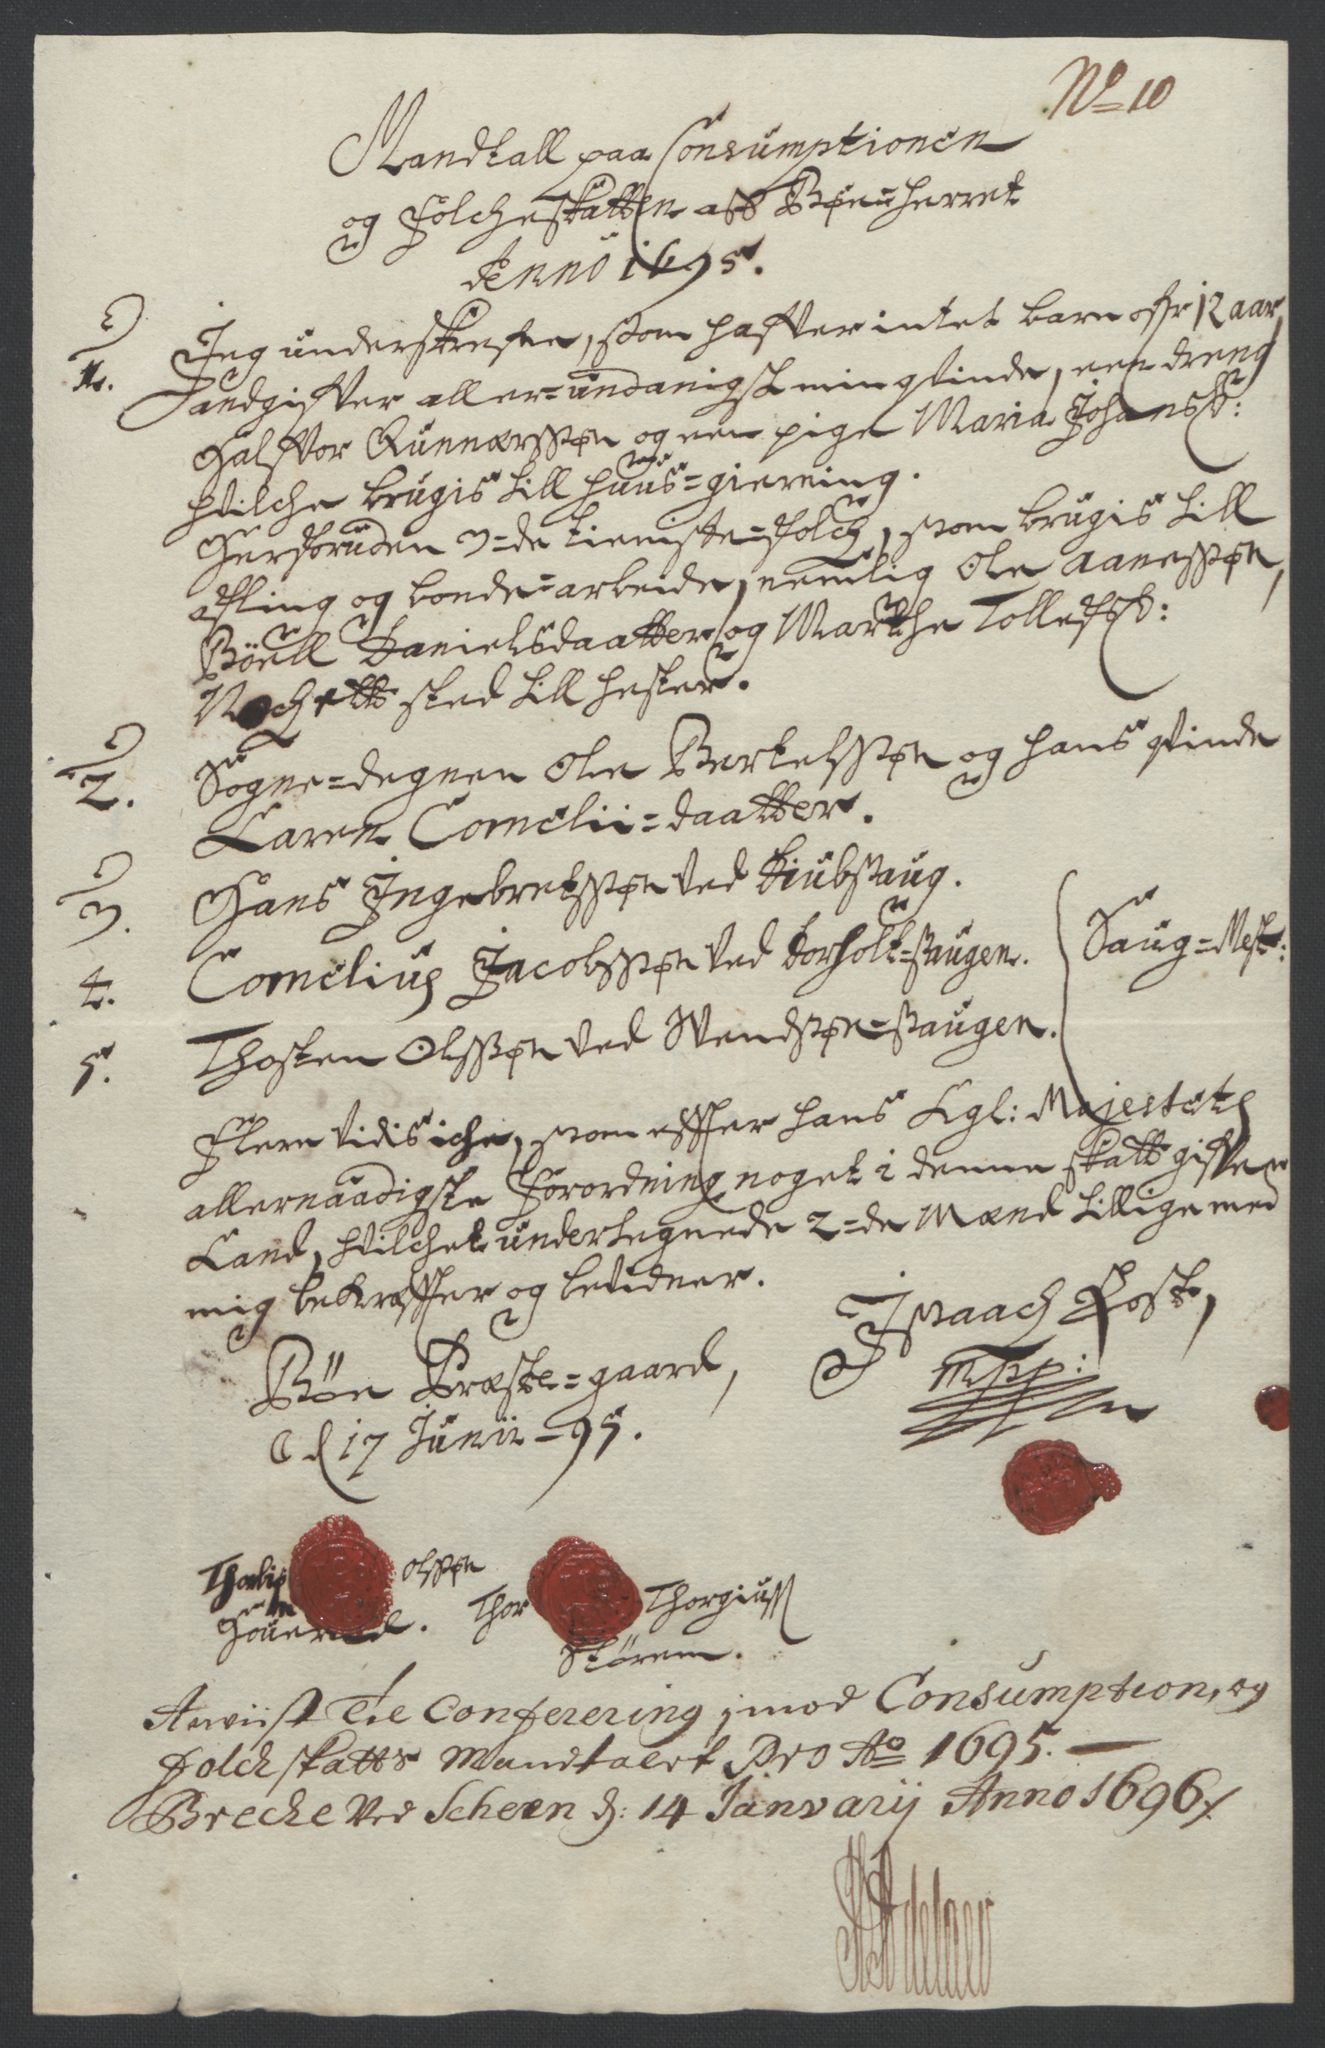 No 10
Mandtall paa Consumptionen
og Folcheskatten aff Bøe-herret
Anno 1695.
1. Jeg underskrefne, som haffver intet barn offr 12 aar,
andgiffver aller-undanigst min qvinde, een dreng
Halffvor Gunnersøn og een pige Maria Johansd:
hvilche brugis till huus-giering.
Herforuden 3-de tieniste-folch, som brugis till
afling og bonde-arbeide, nemlig Ole Aanessøn,
Böell Danielsdaatter og Marthe Tollefsd:
Noch ett sted till hester.
2. Sogne-degnen Ole Bertelssøn og hans qvinde
Caren Cornelii-daatter.
3. Hans Ingebretssøn ved Diubsaug.
4. Cornelius Jacobssøn ved Dorholt-saugen. Saug-Mest:
5. Thosten Olssøn ved Svendsøe-saugen.
Flere vidis iche, som effter hans Kgl: Majestets
allernaadigste Forordning noget i denne skatt giffve
Kand, hvilchet undertegnede 2-de Mænd tillige med
mig bekræffter og betidner.
Bøe Præste-gaard, Isaach Fosk,
d 17 Junii -95. mpp:
Olssøn Thor Thorgiuss
Störem.
Anviist Til Conferering, imod Consumption, og
folch skatts Mandtalet Pro Ao 1695.
Breche Ved Scheen d: 14 Januarij Anno 1696/.
Adelaer